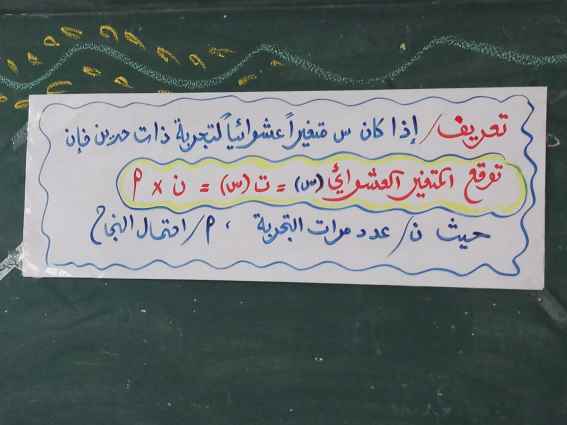 تعريف/ إذا كان س متغيراً عشوائياً لتجربة ذات حدين فإن
توقع المتغير العشوائي (س) = ت (س) = ن × م
حيث ن/ عدد مرات التجربة ، م/ احتمال النجاح